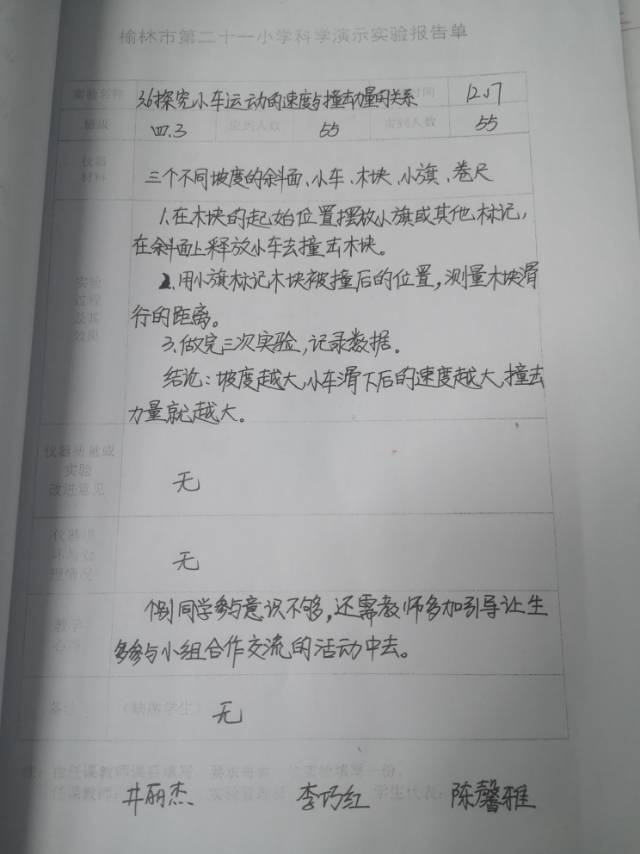 榆林市第二十一小学科学演示实验报告单
实验名称 36探究小车运动的速度与撞击力量的关系 时间 12.17
班级 四.3 应到人数 55 实到人数 55
仪器 材料 三个不同坡度的斜面、小车、木块、小旗、卷尺
1.在木块的起始位置摆放小旗或其他标记,
在斜面上释放小车去撞击木块。
实验 2.用小旗标记木块被撞后的位置,测量木块滑
过程 行的距离。
及其 3.做完三次实验,记录数据。
效果 结论:坡度越大,小车滑下后的速度越大,撞击
力量就越大。
仪器质量或
实验 无
改进意见
无
个别同学参与意识不够,还需教师多加引导让生
教学 多参与小组合作交流的活动中去。
备注 (缺席学生) 无
任课教师: 井丽杰 李巧红 学生代表: 陈馨雅